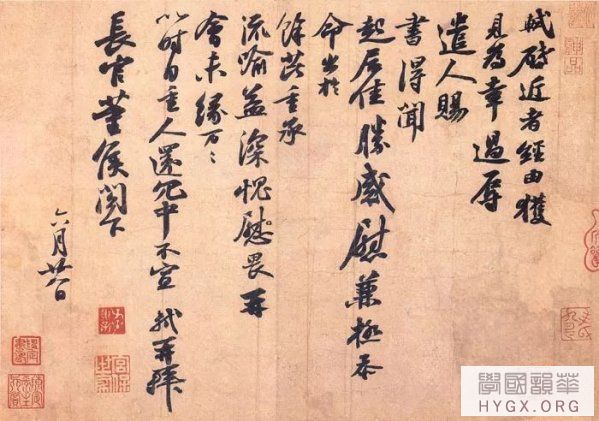 軾啟近者經由獲
見為幸過辱
遣人賜
書得聞
起居佳勝感慰兼極忝
命出於
餘芘重承
流喻益深愧慰畏再
會未緣万〻
以時自重人還冗中不宣 軾再拜
長官董侯閣下
六月廿八日
學國韻華
HYGX.ORG